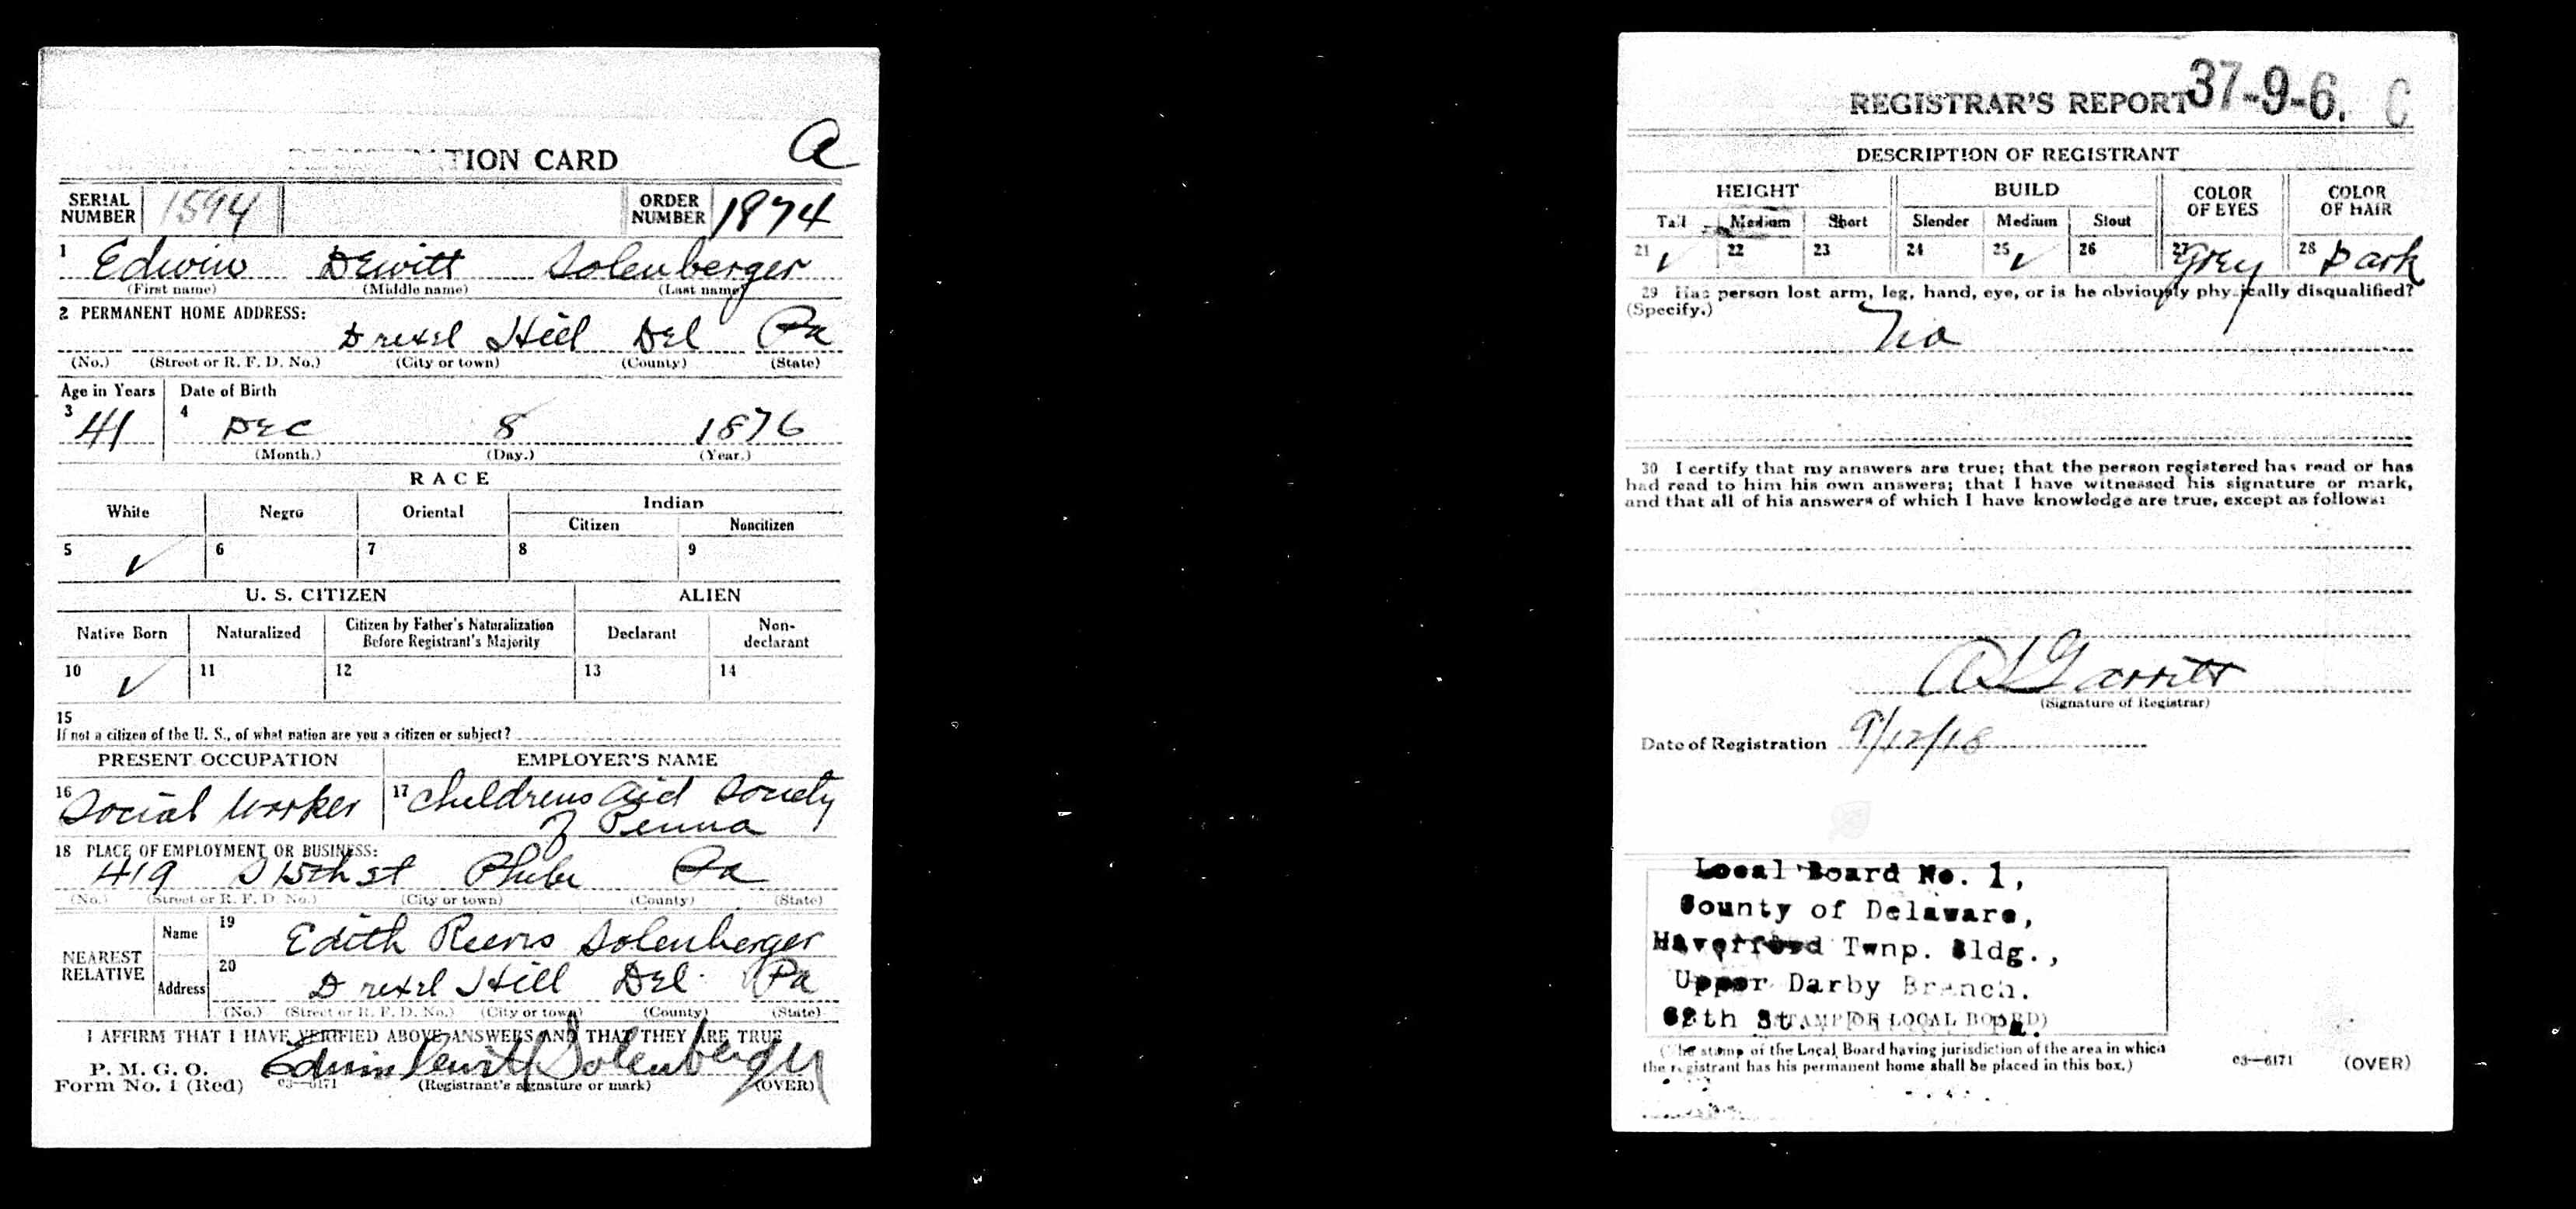 TION CARD
A
SERIAL NUMBER 1594 ORDER NUMBER 1874
1 Edwin DEwitt Solenberger
(First name) (Middle name) (Last name)
2 PERMANENT HOME ADDRESS:
Drexel Hill Del Pa
(No.) (Street or R. F. D. No.) (City or town) (County) (State)
Age in Years Date of Birth
3 41 4 DEC 8 1876
(Month.) (Day.) (Year.)
RACE
White Negro Oriental Indian
Citizen Noncitizen
5 ✓ 6 7 8 9
U. S. CITIZEN ALIEN
Native Born Naturalized Citizen by Father's Naturalization Before Registrant's Majority Declarant Non-declarant
10 ✓ 11 12 13 14
15
If not a citizen of the U. S., of what nation are you a citizen or subject?
PRESENT OCCUPATION EMPLOYER'S NAME
16 Social Worker 17 Childrens Aid Society
of Penna
18 PLACE OF EMPLOYMENT OR BUSINESS:
419 S 15th st Phila Pa
(No.) (Street or R. F. D. No.) (City or town) (County) (State)
NEAREST RELATIVE
Name 19 Edith Reeves Solenberger
Address 20 Drexel Hill Del. Pa
(No.) (Street or R. F. D. No.) (City or town) (County) (State)
I AFFIRM THAT I HAVE VERIFIED ABOVE ANSWERS AND THAT THEY ARE TRUE
P. M. G. O.
Form No. 1 (Red) c3—6171 Edwin Dewitt Solenberger
(Registrant's signature or mark) (OVER)
REGISTRAR'S REPORT 37-9-6. C
DESCRIPTION OF REGISTRANT
HEIGHT BUILD COLOR OF EYES COLOR OF HAIR
Tall Medium Short Slender Medium Stout
21 ✓ 22 23 24 25 ✓ 26 27 Grey 28 Dark
29 Has person lost arm, leg, hand, eye, or is he obviously physically disqualified?
(Specify.)
No
30 I certify that my answers are true; that the person registered has read or has
had read to him his own answers; that I have witnessed his signature or mark,
and that all of his answers of which I have knowledge are true, except as follows:
A L Garritt
(Signature of Registrar)
Date of Registration 9/12/18
Local Board No. 1,
County of Delaware,
Haverford Twnp. Bldg.,
Upper Darby Branch.
69th St. Pa.
(STAMP OF LOCAL BOARD)
(The stamp of the Local Board having jurisdiction of the area in which
the registrant has his permanent home shall be placed in this box.)
c3—6171 (OVER)